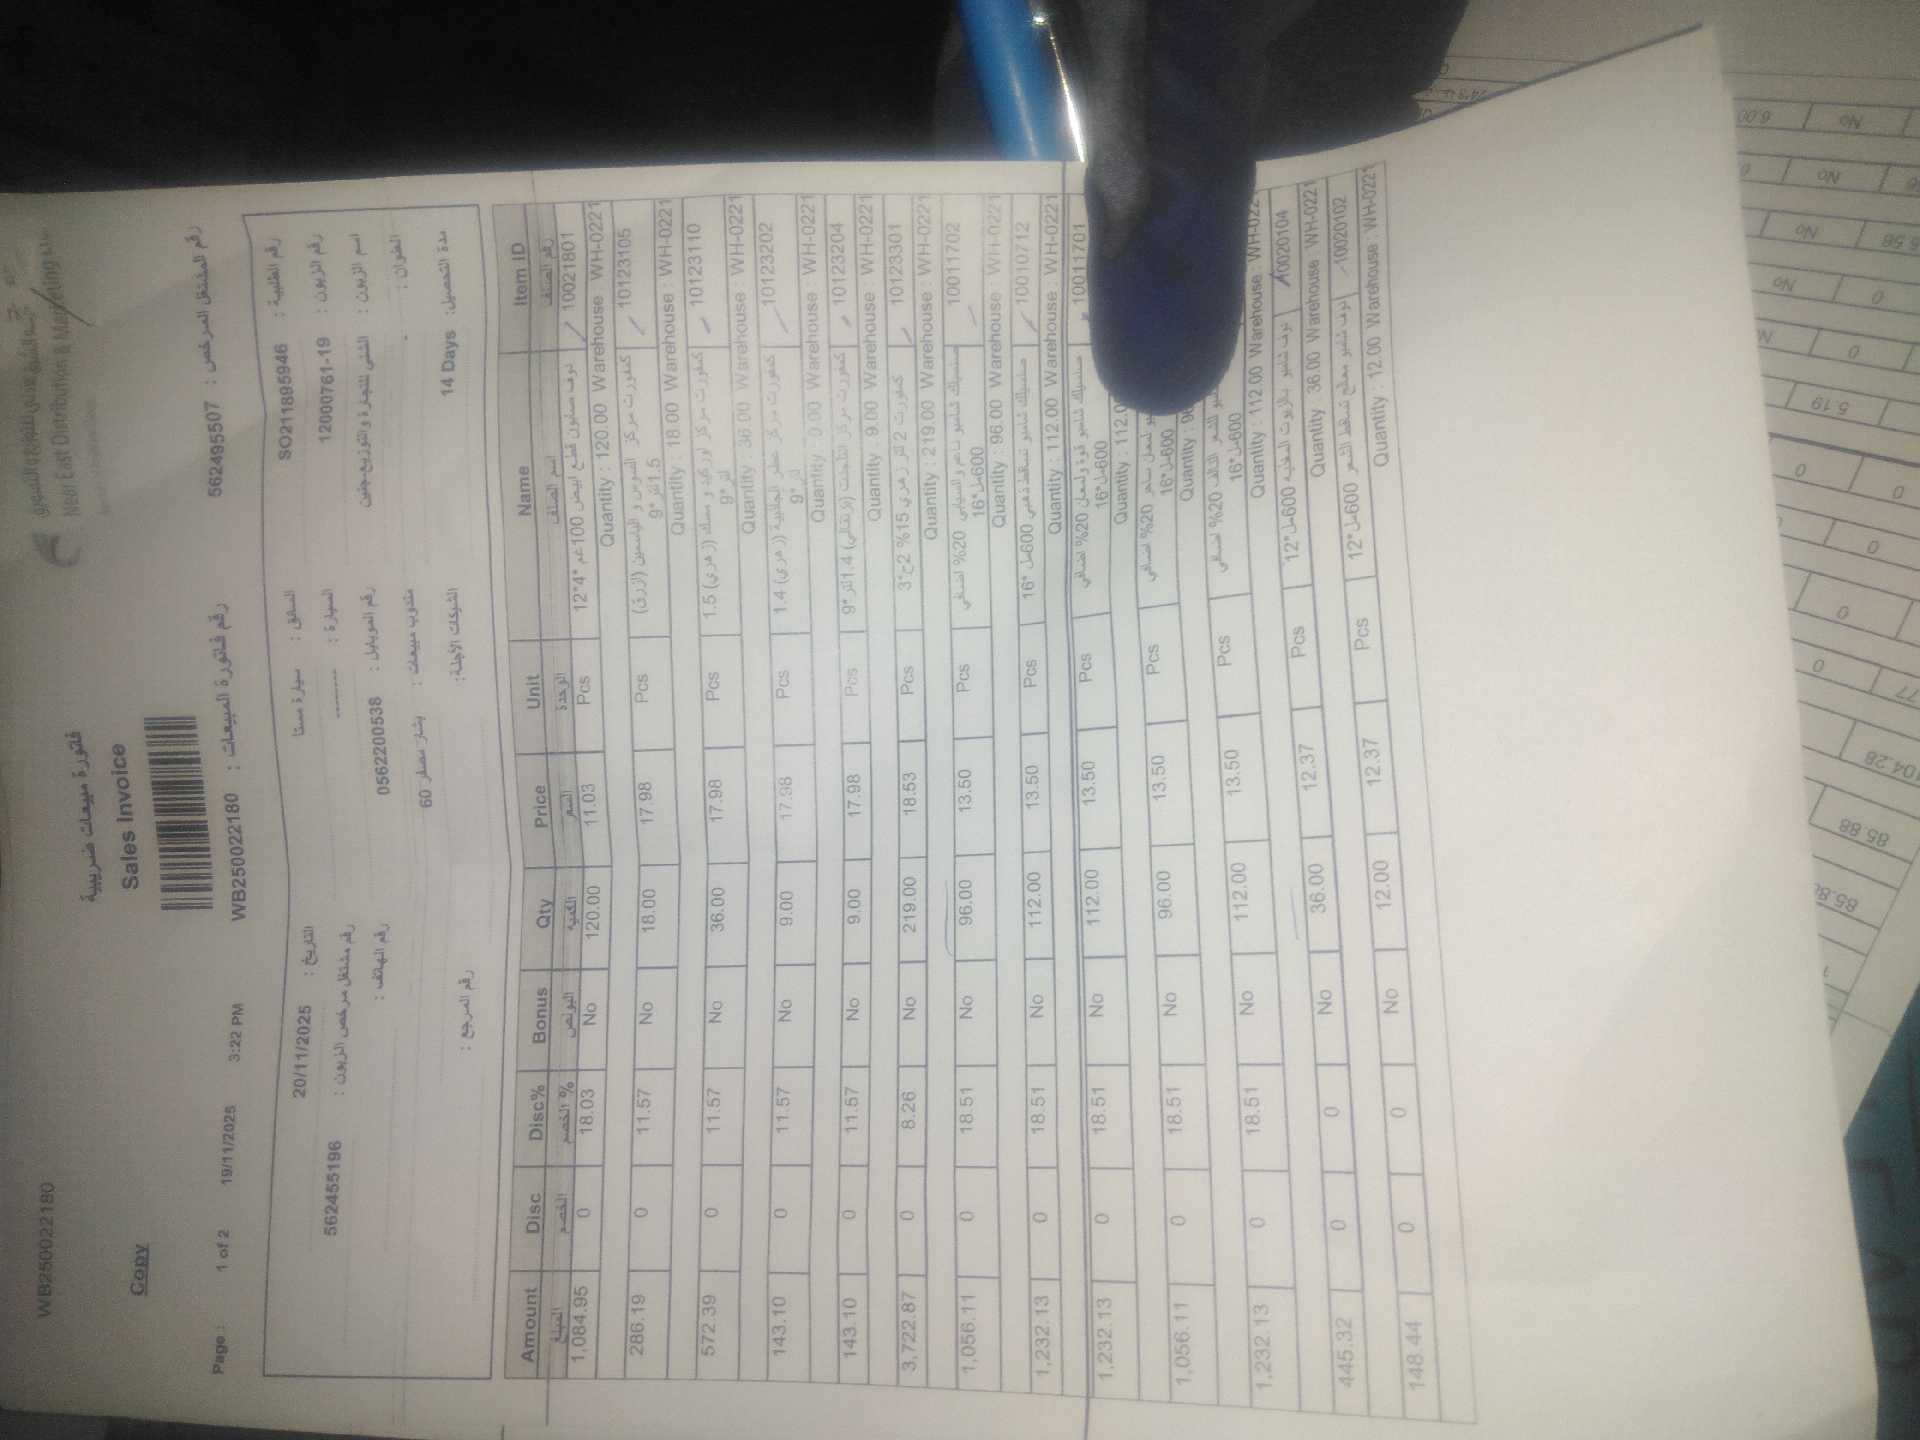 WB250022180
Near East Distribution & Marketing
فاتورة مبيعات ضريبية
Sales Invoice
Copy
رقم المشتغل المرخص : 562495507
رقم فاتورة المبيعات : WB250022180
19/11/2025 3:22 PM
Page : 1 of 2
رقم الطلبية : SO211895946
رقم الزبون : 12000761-19
اسم الزبون : الشني للتجارة والتوزيع-جنين
العنوان : -
مدة التحصيل: 14 Days
السائق : سيارة مستا
السيارة : -------
رقم الموبايل : 0562200538
مندوب مبيعات : بشار مصفر 60
الشيكات الآجلة:
التاريخ : 20/11/2025
رقم مشتغل مرخص الزبون : 562455196
رقم الهاتف :
رقم المرجع :
Amount Disc Disc% Bonus Qty Price Unit Name Item ID
المبلغ الخصم الخصم % البونص الكمية السعر الوحدة اسم الصنف رقم الصنف
1,084.95 0 18.03 No 120.00 11.03 Pcs دوف صابون قطع ابيض 100غم *4*12 10021801
Quantity : 120.00 Warehouse : WH-0221
286.19 0 11.57 No 18.00 17.98 Pcs كمفورت مركز السوس و الياسمين (ازرق) 1.5لتر *9 10123105
Quantity : 18.00 Warehouse : WH-0221
572.39 0 11.57 No 36.00 17.98 Pcs كمفورت مركز اوركيد و مسك (زهري) 1.5 لتر *9 10123110
Quantity : 36.00 Warehouse : WH-0221
143.10 0 11.57 No 9.00 17.98 Pcs كمفورت مركز عطر الجاذبية (زهري) 1.4 لتر *9 10123202
Quantity : 9.00 Warehouse : WH-0221
143.10 0 11.57 No 9.00 17.98 Pcs كمفورت مركز (برتقالي) 1.4لتر *9 10123204
Quantity : 9.00 Warehouse : WH-0221
3,722.87 0 8.26 No 219.00 18.53 Pcs كمفورت 2 لتر زهري 15% 2ح*3 10123301
Quantity : 219.00 Warehouse : WH-0221
1,056.11 0 18.51 No 96.00 13.50 Pcs صنسيلك شامبو ناعم و انسيابي 20% اضافي 600مل*16 10011702
Quantity : 96.00 Warehouse : WH-0221
1,232.13 0 18.51 No 112.00 13.50 Pcs صنسيلك شامبو تساقط ذهبي 600مل *16 10010712
Quantity : 112.00 Warehouse : WH-0221
1,232.13 0 18.51 No 112.00 13.50 Pcs صنسيلك شامبو قوة و لمعان 20% اضافي 600مل*16 10011701
Quantity : 112.0
1,056.11 0 18.51 No 96.00 13.50 Pcs لمعان ساحر 20% اضافي 600مل*16
Quantity : 96
1,232.13 0 18.51 No 112.00 13.50 Pcs للشعر التالف 20% اضافي 600مل*16
Quantity : 112.00 Warehouse : WH-022
445.32 0 0 No 36.00 12.37 Pcs دوف شامبو بالزيوت المغذيه 600مل*12 10020104
Quantity : 36.00 Warehouse WH-0221
148.44 0 0 No 12.00 12.37 Pcs دوف شامبو معالج تساقط الشعر 600مل*12 10020102
Quantity : 12.00 Warehouse : WH-0221
6.00
No
No
0
No
6.56
No
0
0
5.19
0
0
0
0
0
77
104.28
85.88